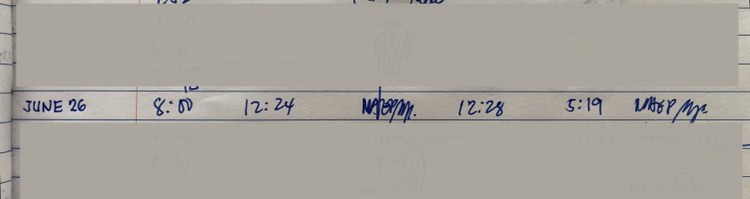 JUNE 26 8:00 12:24 12:28 5:19